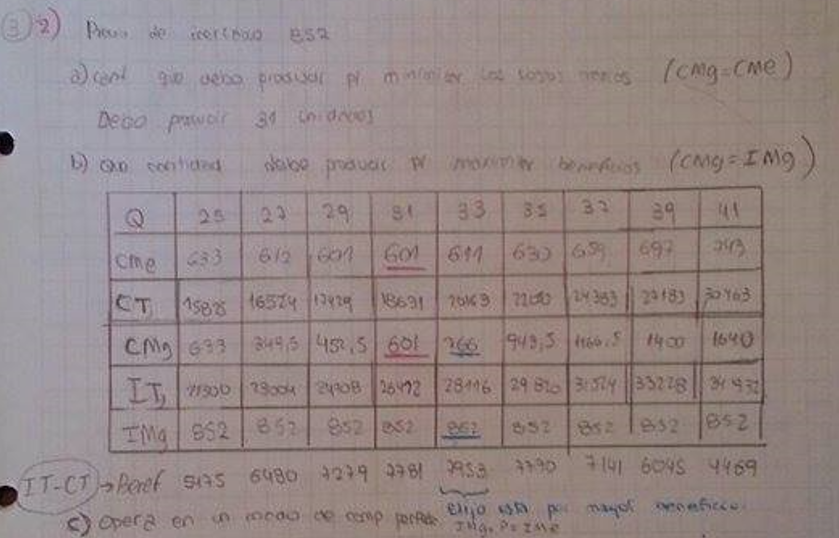 3) 2) Precio de mercado 852
a) cant que debo producir p/ minimizar los costos medios (CMg=CMe)
Debo producir 31 unidades
b) Que cantidad debe producir p/ maximizar beneficios (CMg=IMg)
Q 25 27 29 31 33 35 37 39 41
CMe 633 612 601 601 611 630 659 697 743
CT 15825 16524 17429 18631 20163 22050 24383 27183 30463
CMg 633 349,5 452,5 601 766 943,5 1166,5 1400 1640
IT 21300 23004 24708 26412 28116 29820 31524 33228 34932
IMg 852 852 852 852 852 852 852 852 852
IT-CT → Benef 5475 6480 7279 7781 7953 7770 7141 6045 4469
Elijo esta por mayor beneficio.
c) Opera en un mcado de comp perfecta IMg=P=IMe